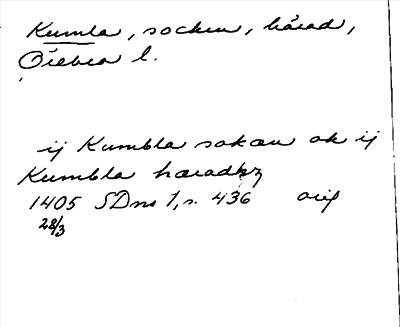 Kumla, socken, härad,
Örebro l.
ij Kumbla sokau ok ij
Kumbla haradhz
1405 SDns 1, s. 436 orig
28/3